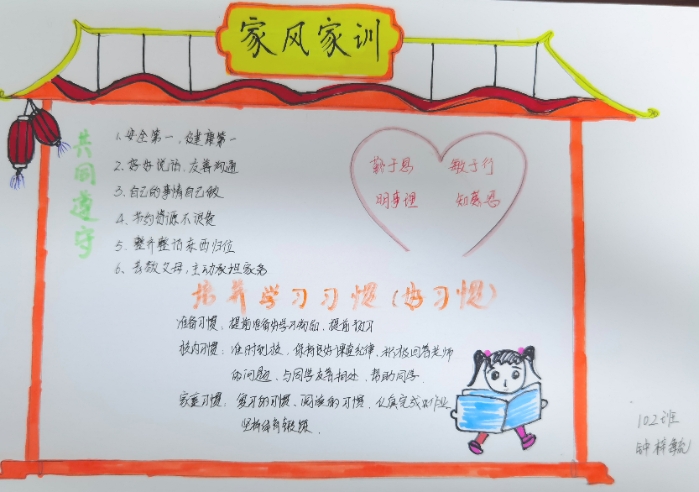 家风家训
共同遵守
1、安全第一，健康第一
2、好好说话，友善沟通
3、自己的事情自己做
4、节约资源不浪费
5、整齐整洁东西归位
6、孝敬父母，主动承担家务
勤于思 敏于行
明事理 知感恩
培养学习习惯（好习惯）
准备习惯：提前准备好学习物品，提前预习
校内习惯：准时到校，保持良好课堂纪律，积极回答老师
的问题，与同学友善相处，帮助同学。
家庭习惯：复习的习惯，阅读的习惯，认真完成作业
坚持体育锻炼。
102班
钟梓